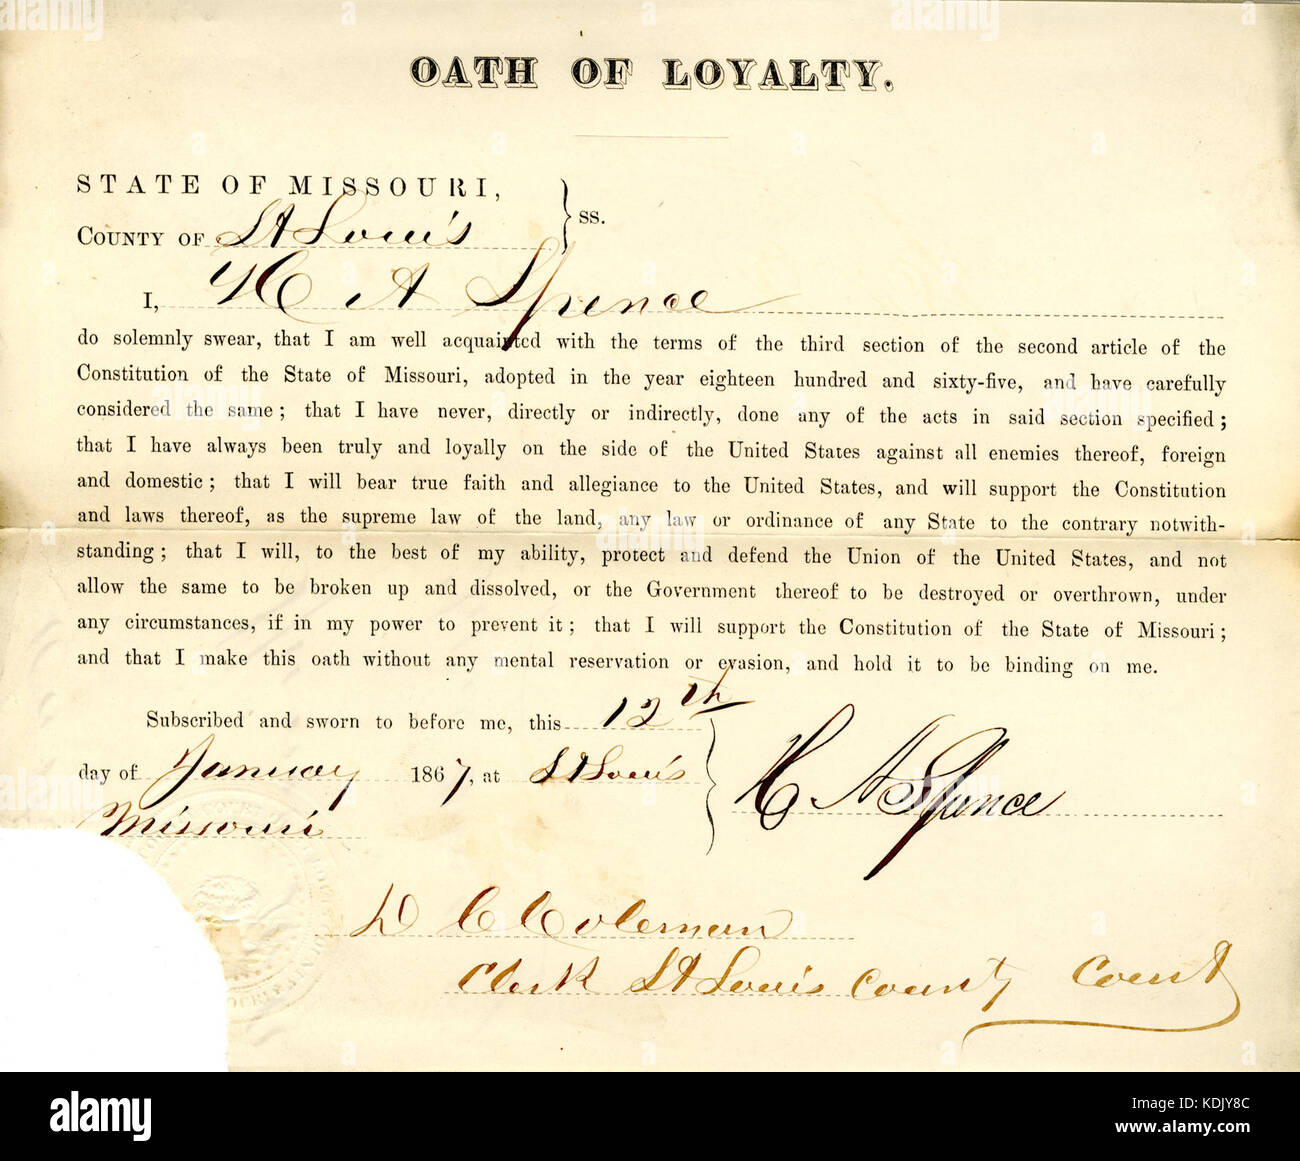 OATH OF LOYALTY.
STATE OF MISSOURI,
COUNTY OF St Louis } ss.
I, H A Spence
do solemnly swear, that I am well acquainted with the terms of the third section of the second article of the
Constitution of the State of Missouri, adopted in the year eighteen hundred and sixty-five, and have carefully
considered the same; that I have never, directly or indirectly, done any of the acts in said section specified;
that I have always been truly and loyally on the side of the United States against all enemies thereof, foreign
and domestic; that I will bear true faith and allegiance to the United States, and will support the Constitution
and laws thereof, as the supreme law of the land, any law or ordinance of any State to the contrary notwith-
standing; that I will, to the best of my ability, protect and defend the Union of the United States, and not
allow the same to be broken up and dissolved, or the Government thereof to be destroyed or overthrown, under
any circumstances, if in my power to prevent it; that I will support the Constitution of the State of Missouri;
and that I make this oath without any mental reservation or evasion, and hold it to be binding on me.
Subscribed and sworn to before me, this 12th
day of January 1867, at St Louis
Missouri
H A Spence
D C Coleman
Clerk St Louis County Court
alamy
Image ID: KDJY8C
www.alamy.com